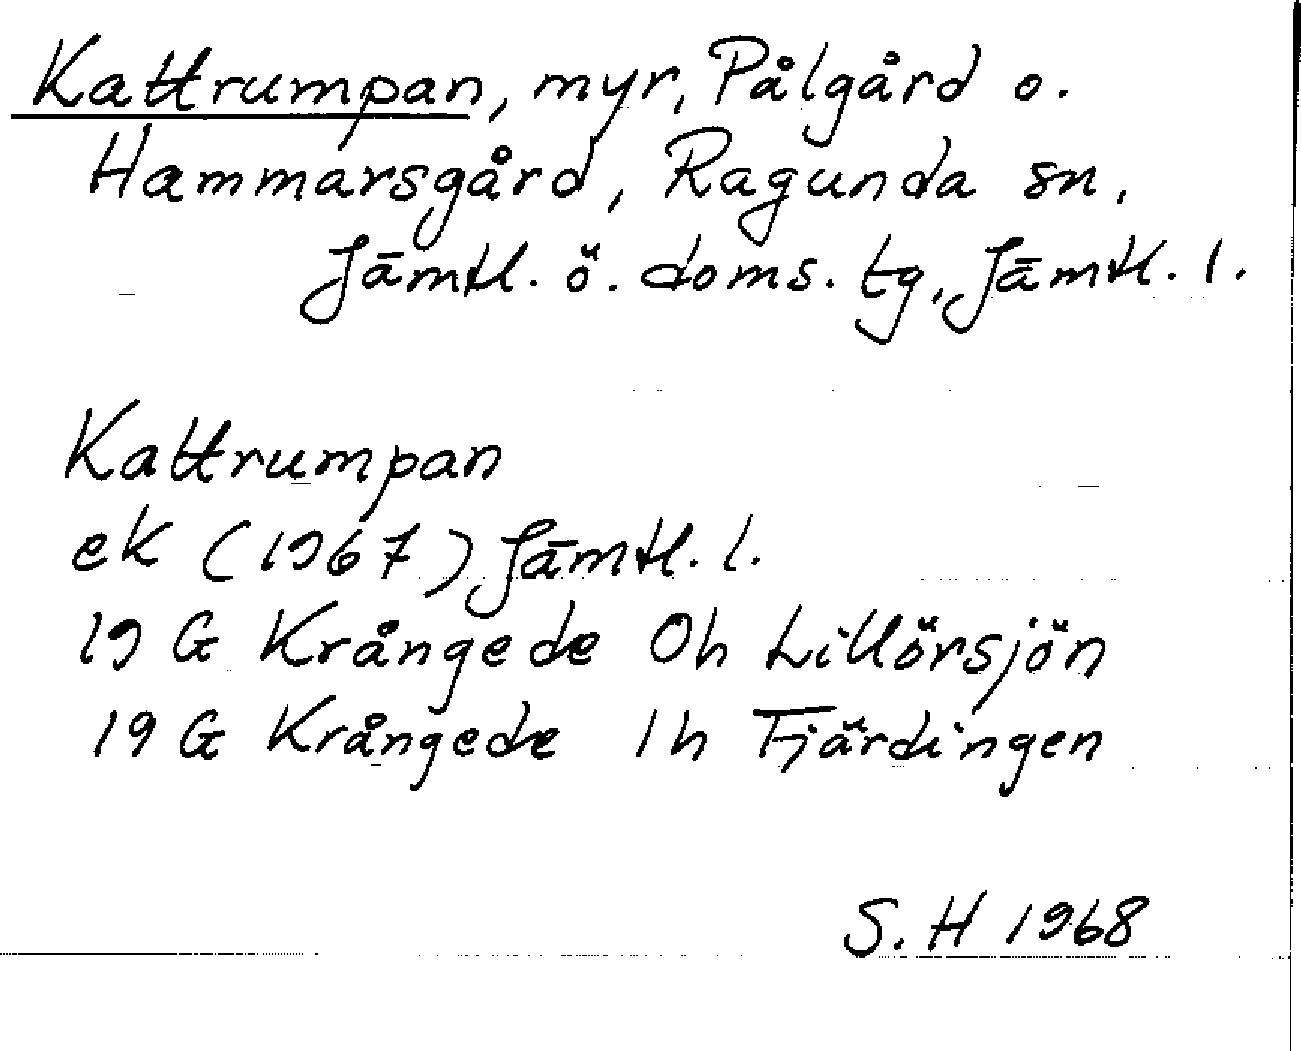 Kattrumpan, myr, Pålgård o.
Hammarsgård, Ragunda sn,
Jämtl. ö. doms. tg, Jämtl. l.
Kattrumpan
ek (1967) Jämtl. l.
19 G Krångede 0h Lillörsjön
19 G Krångede 1h Fjärdingen
S. H 1968